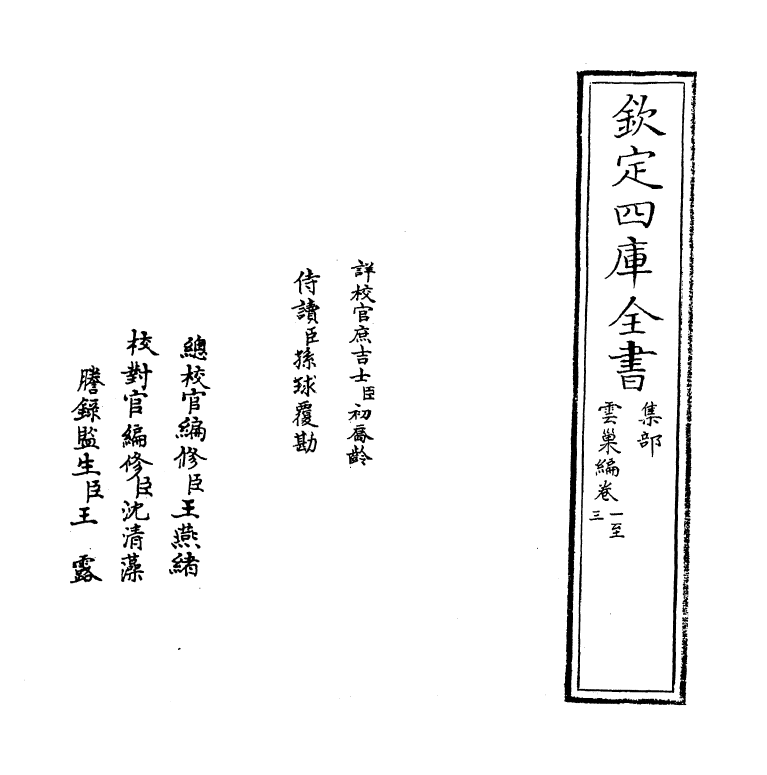 欽定四庫全書
集部
雲巢編卷一至三
詳校官庶吉士臣初喬齡
侍讀臣孫球覆勘
總校官編修臣王燕緒
校對官編修臣沈清藻
謄錄監生臣王露